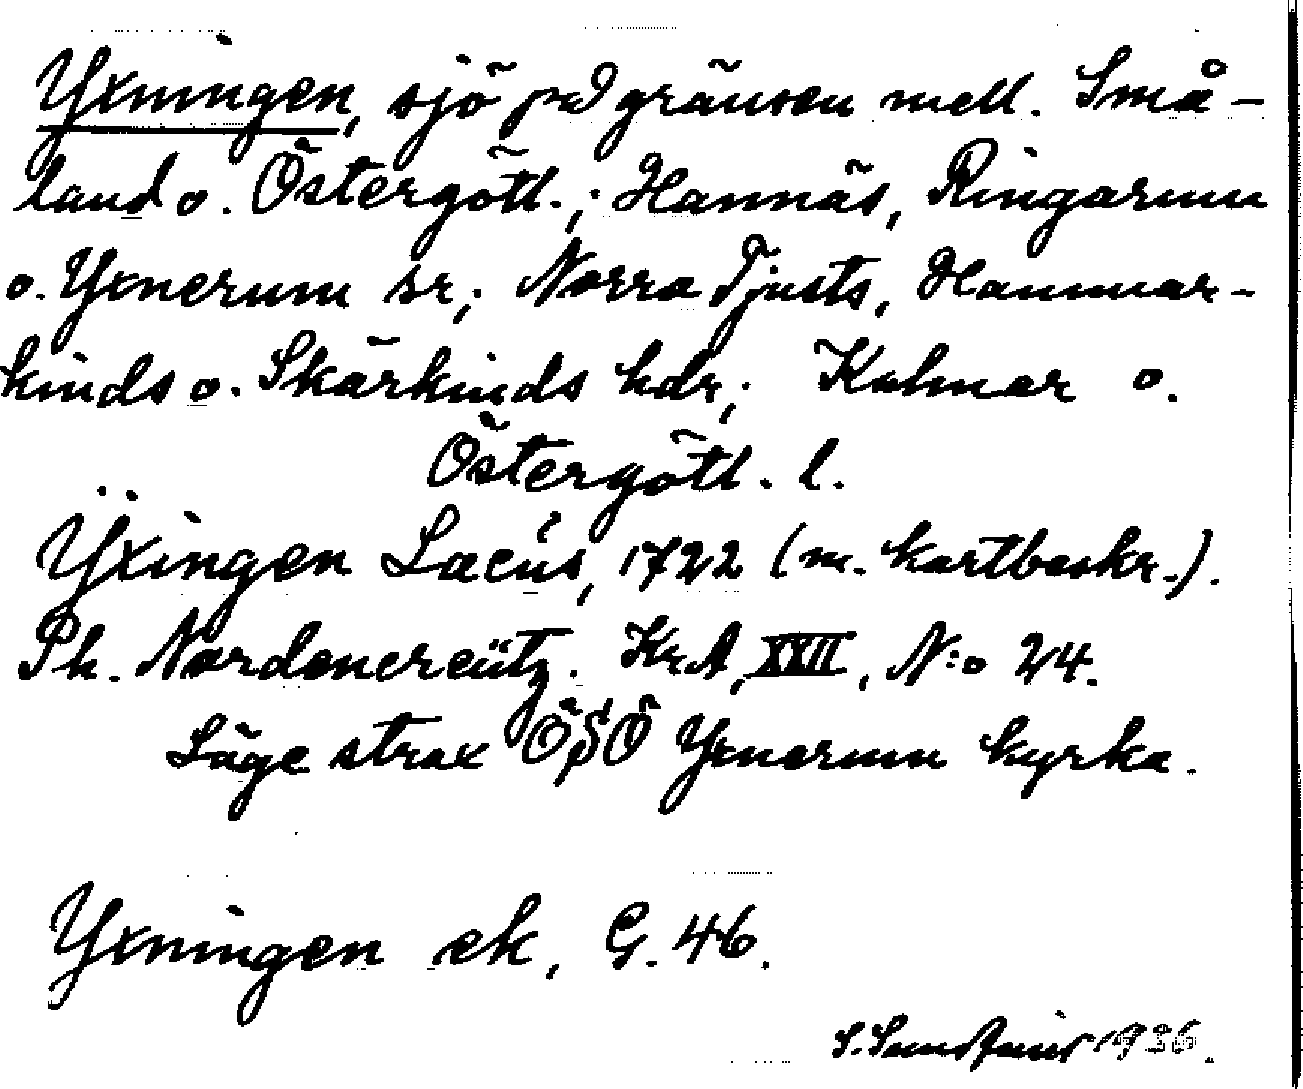 Yxningen, sjö på gränsen mell. Små-
land o. Östergötl.; Hannäs, Ringarum
o. Yxnerum sr; Norra Tjusts, Hammar-
kinds o. Skärkinds hdr; Kalmar o.
Östergötl. l.
Ÿxingen Lacus, 1722 (m. kartbeskr.).
Ph. Nordencreütz. KrA, XXII, N:o 24.
Läge strax ÖSÖ Yxnerum kyrka.
Yxningen ek, G. 46.
S. 1936.